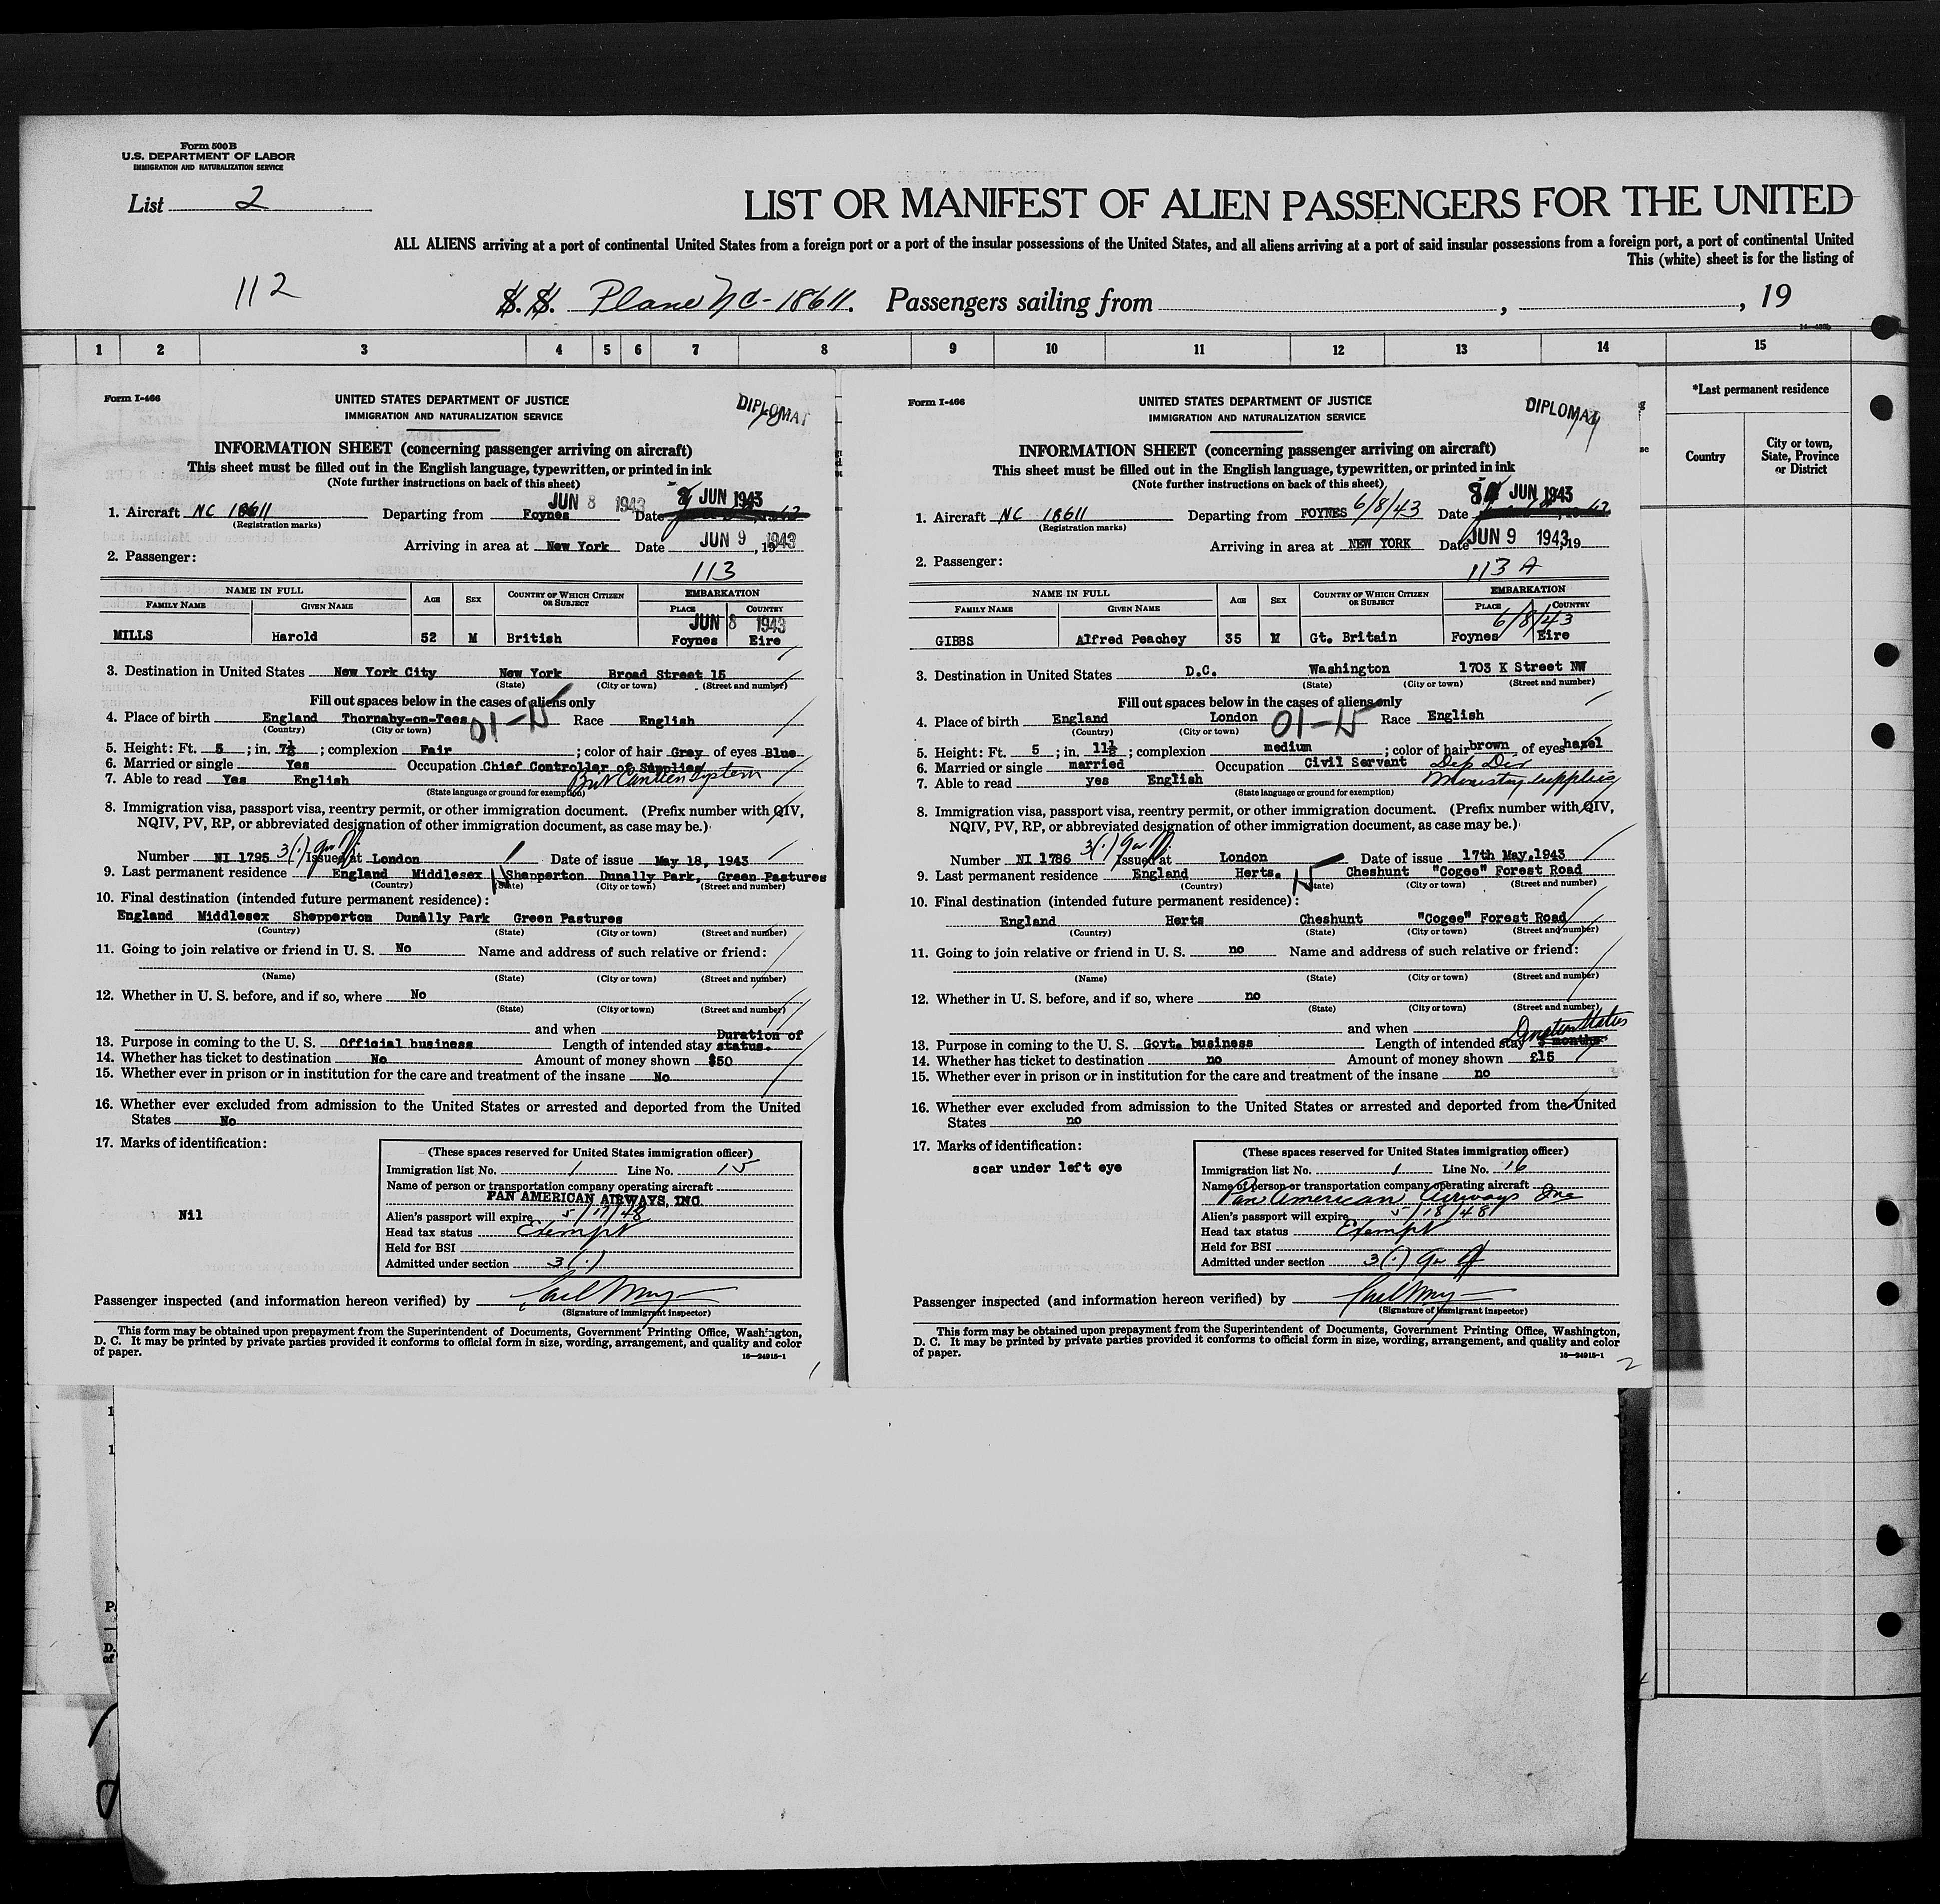 Form 500B
U.S. DEPARTMENT OF LABOR
IMMIGRATION AND NATURALIZATION SERVICE
List 2
LIST OR MANIFEST OF ALIEN PASSENGERS FOR THE UNITED
ALL ALIENS arriving at a port of continental United States from a foreign port or a port of the insular possessions of the United States, and all aliens arriving at a port of said insular possessions from a foreign port, a port of continental United
This (white) sheet is for the listing of
112
S.S. Plane NC-18611. Passengers sailing from , , 19
1 2 3 4 5 6 7 8 9 10 11 12 13 14 15
*Last permanent residence
Country
City or town, State, Province or District
Form I-466
UNITED STATES DEPARTMENT OF JUSTICE
IMMIGRATION AND NATURALIZATION SERVICE
DIPLOMAT
INFORMATION SHEET (concerning passenger arriving on aircraft)
This sheet must be filled out in the English language, typewritten, or printed in ink
(Note further instructions on back of this sheet)
JUN 8 1943 8 JUN 1943
1. Aircraft NC 18611 Departing from Foynes Date
(Registration marks)
Arriving in area at New York Date JUN 9 1943, 19
2. Passenger:
113
NAME IN FULL AGE SEX COUNTRY OF WHICH CITIZEN OR SUBJECT EMBARKATION
FAMILY NAME GIVEN NAME PLACE COUNTRY
JUN 8 1943
MILLS Harold 52 M British Foynes Eire
3. Destination in United States New York City New York Broad Street 15
(State) (City or town) (Street and number)
Fill out spaces below in the cases of aliens only
4. Place of birth England Thornaby-on-Tees Race English
(Country) (City or town)
01-15
5. Height: Ft. 5; in. 7½; complexion Fair; color of hair Grey of eyes Blue
6. Married or single Yes Occupation Chief Controller of Supplies
7. Able to read Yes English Brit Canteen System
(State language or ground for exemption)
8. Immigration visa, passport visa, reentry permit, or other immigration document. (Prefix number with QIV,
NQIV, PV, RP, or abbreviated designation of other immigration document, as case may be.)
Number NI 1795 3(1) Issued at London Date of issue May 18, 1943
9. Last permanent residence England Middlesex Shepperton Dunally Park, Green Pastures
(Country) (State) (City or town) (Street and number)
10. Final destination (intended future permanent residence):
England Middlesex Shepperton Dunally Park Green Pastures
(Country) (State) (City or town) (Street and number)
11. Going to join relative or friend in U. S. No Name and address of such relative or friend:
(Name) (State) (City or town) (Street and number)
12. Whether in U. S. before, and if so, where No
(State) (City or town) (Street and number)
and when
13. Purpose in coming to the U. S. Official business Length of intended stay Duration of status.
14. Whether has ticket to destination No Amount of money shown $50
15. Whether ever in prison or in institution for the care and treatment of the insane No
16. Whether ever excluded from admission to the United States or arrested and deported from the United
States No
17. Marks of identification:
Nil
(These spaces reserved for United States immigration officer)
Immigration list No. 1 Line No. 15
Name of person or transportation company operating aircraft
PAN AMERICAN AIRWAYS, INC.
Alien's passport will expire 5/17/48
Head tax status Exempt
Held for BSI
Admitted under section 3(1)
Passenger inspected (and information hereon verified) by
(Signature of immigrant inspector)
This form may be obtained upon prepayment from the Superintendent of Documents, Government Printing Office, Washington,
D. C. It may be printed by private parties provided it conforms to official form in size, wording, arrangement, and quality and color
of paper.
16—24915-1
1
Form I-466
UNITED STATES DEPARTMENT OF JUSTICE
IMMIGRATION AND NATURALIZATION SERVICE
DIPLOMAT
INFORMATION SHEET (concerning passenger arriving on aircraft)
This sheet must be filled out in the English language, typewritten, or printed in ink
(Note further instructions on back of this sheet)
8 JUN 1943
1. Aircraft NC 18611 Departing from FOYNES 6/8/43 Date
(Registration marks)
Arriving in area at NEW YORK Date JUN 9 1943, 19
2. Passenger:
113 A
NAME IN FULL AGE SEX COUNTRY OF WHICH CITIZEN OR SUBJECT EMBARKATION
FAMILY NAME GIVEN NAME PLACE COUNTRY
6/8/43
GIBBS Alfred Peachey 35 M Gt. Britain Foynes Eire
3. Destination in United States D.C. Washington 1703 K Street NW
(State) (City or town) (Street and number)
Fill out spaces below in the cases of aliens only
4. Place of birth England London Race English
(Country) (City or town)
01-15
5. Height: Ft. 5; in. 11½; complexion medium; color of hair brown of eyes hazel
6. Married or single married Occupation Civil Servant Dep Dir
7. Able to read yes English Ministry Supplies
(State language or ground for exemption)
8. Immigration visa, passport visa, reentry permit, or other immigration document. (Prefix number with QIV,
NQIV, PV, RP, or abbreviated designation of other immigration document, as case may be.)
Number NI 1786 3(1) Issued at London Date of issue 17th May, 1943
9. Last permanent residence England Herts. Cheshunt "Cogee" Forest Road
(Country) (State) (City or town) (Street and number)
10. Final destination (intended future permanent residence):
England Herts Cheshunt "Cogee" Forest Road
(Country) (State) (City or town) (Street and number)
11. Going to join relative or friend in U. S. no Name and address of such relative or friend:
(Name) (State) (City or town) (Street and number)
12. Whether in U. S. before, and if so, where no
(State) (City or town) (Street and number)
and when Duration Status
13. Purpose in coming to the U. S. Govt. business Length of intended stay 3 months
14. Whether has ticket to destination no Amount of money shown £15
15. Whether ever in prison or in institution for the care and treatment of the insane no
16. Whether ever excluded from admission to the United States or arrested and deported from the United
States no
17. Marks of identification:
scar under left eye
(These spaces reserved for United States immigration officer)
Immigration list No. 1 Line No. 16
Name of person or transportation company operating aircraft
Pan American Airways Inc
Alien's passport will expire 5/18/48
Head tax status Exempt
Held for BSI
Admitted under section 3(1)
Passenger inspected (and information hereon verified) by
(Signature of immigrant inspector)
This form may be obtained upon prepayment from the Superintendent of Documents, Government Printing Office, Washington,
D. C. It may be printed by private parties provided it conforms to official form in size, wording, arrangement, and quality and color
of paper.
16—24915-1
2